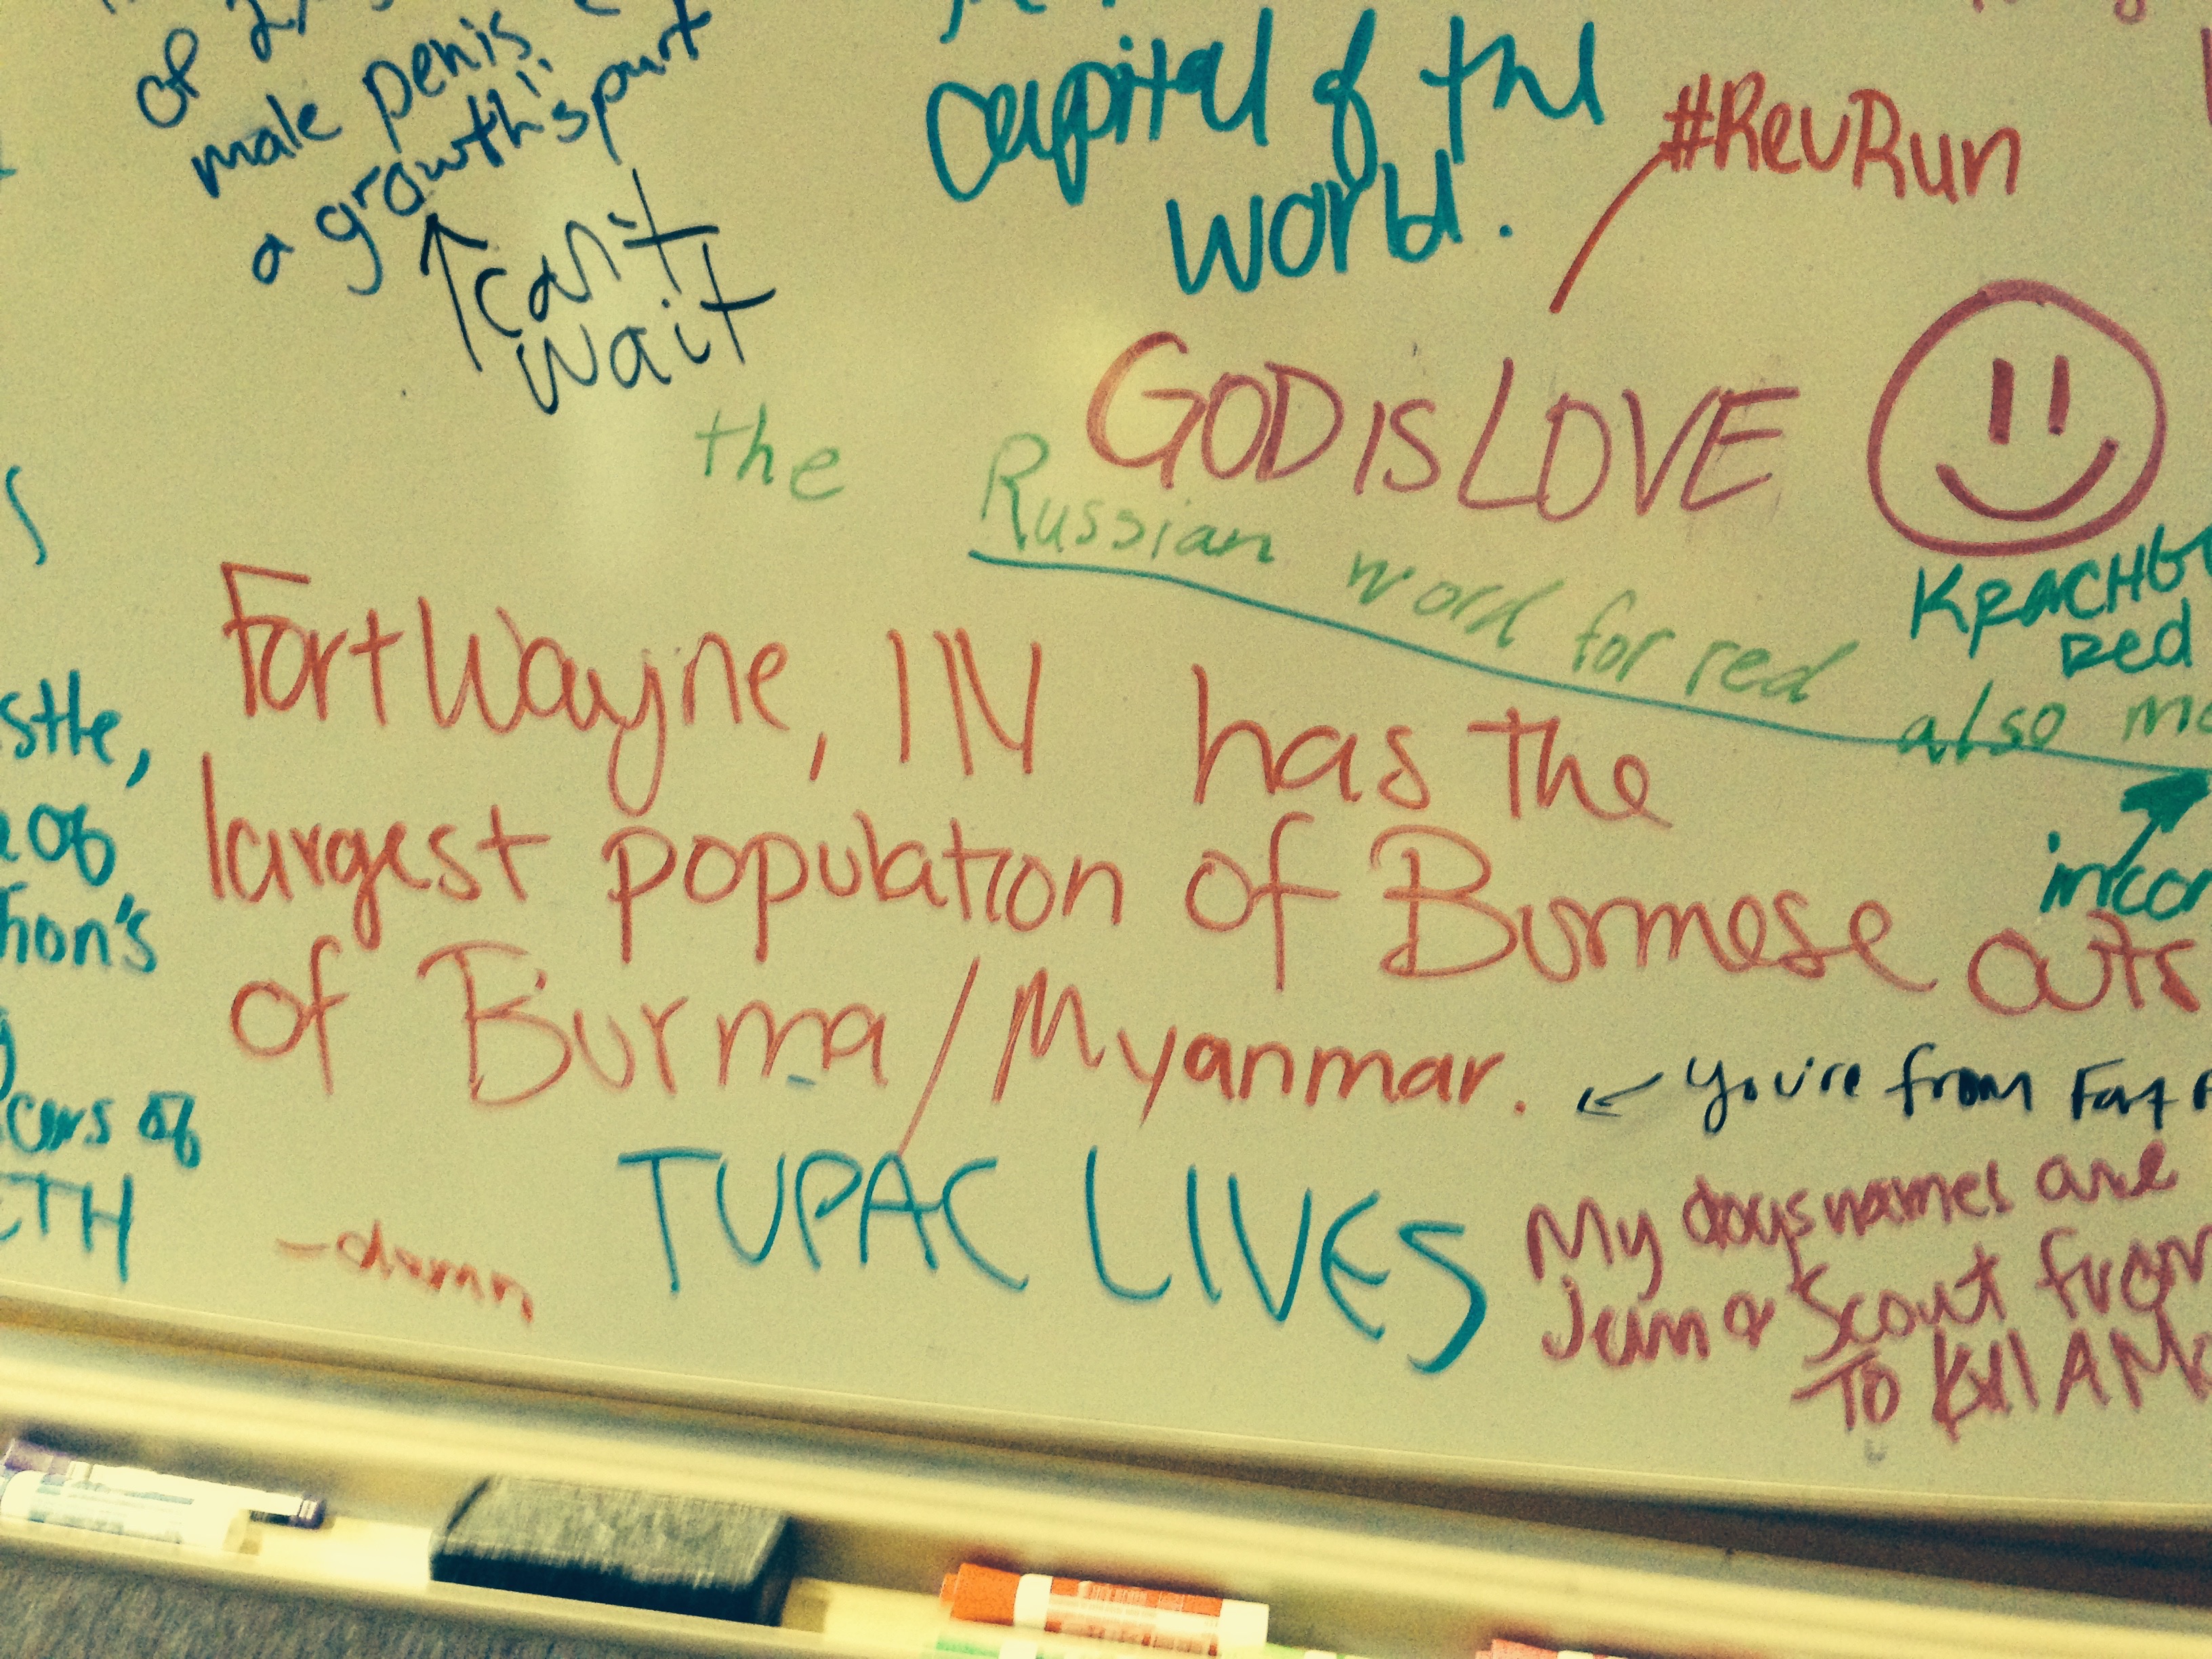 of
male penis
a growth spurt
can't
wait
capital of the
world.
#RevRun
GOD IS LOVE
the Russian word for red also
red
Fort Wayne, IN has the
largest population of Burmese
of Burma/Myanmar.
You're from
TUPAC LIVES
-damn
My dogs names are
Jem & Scout from
To Kill A